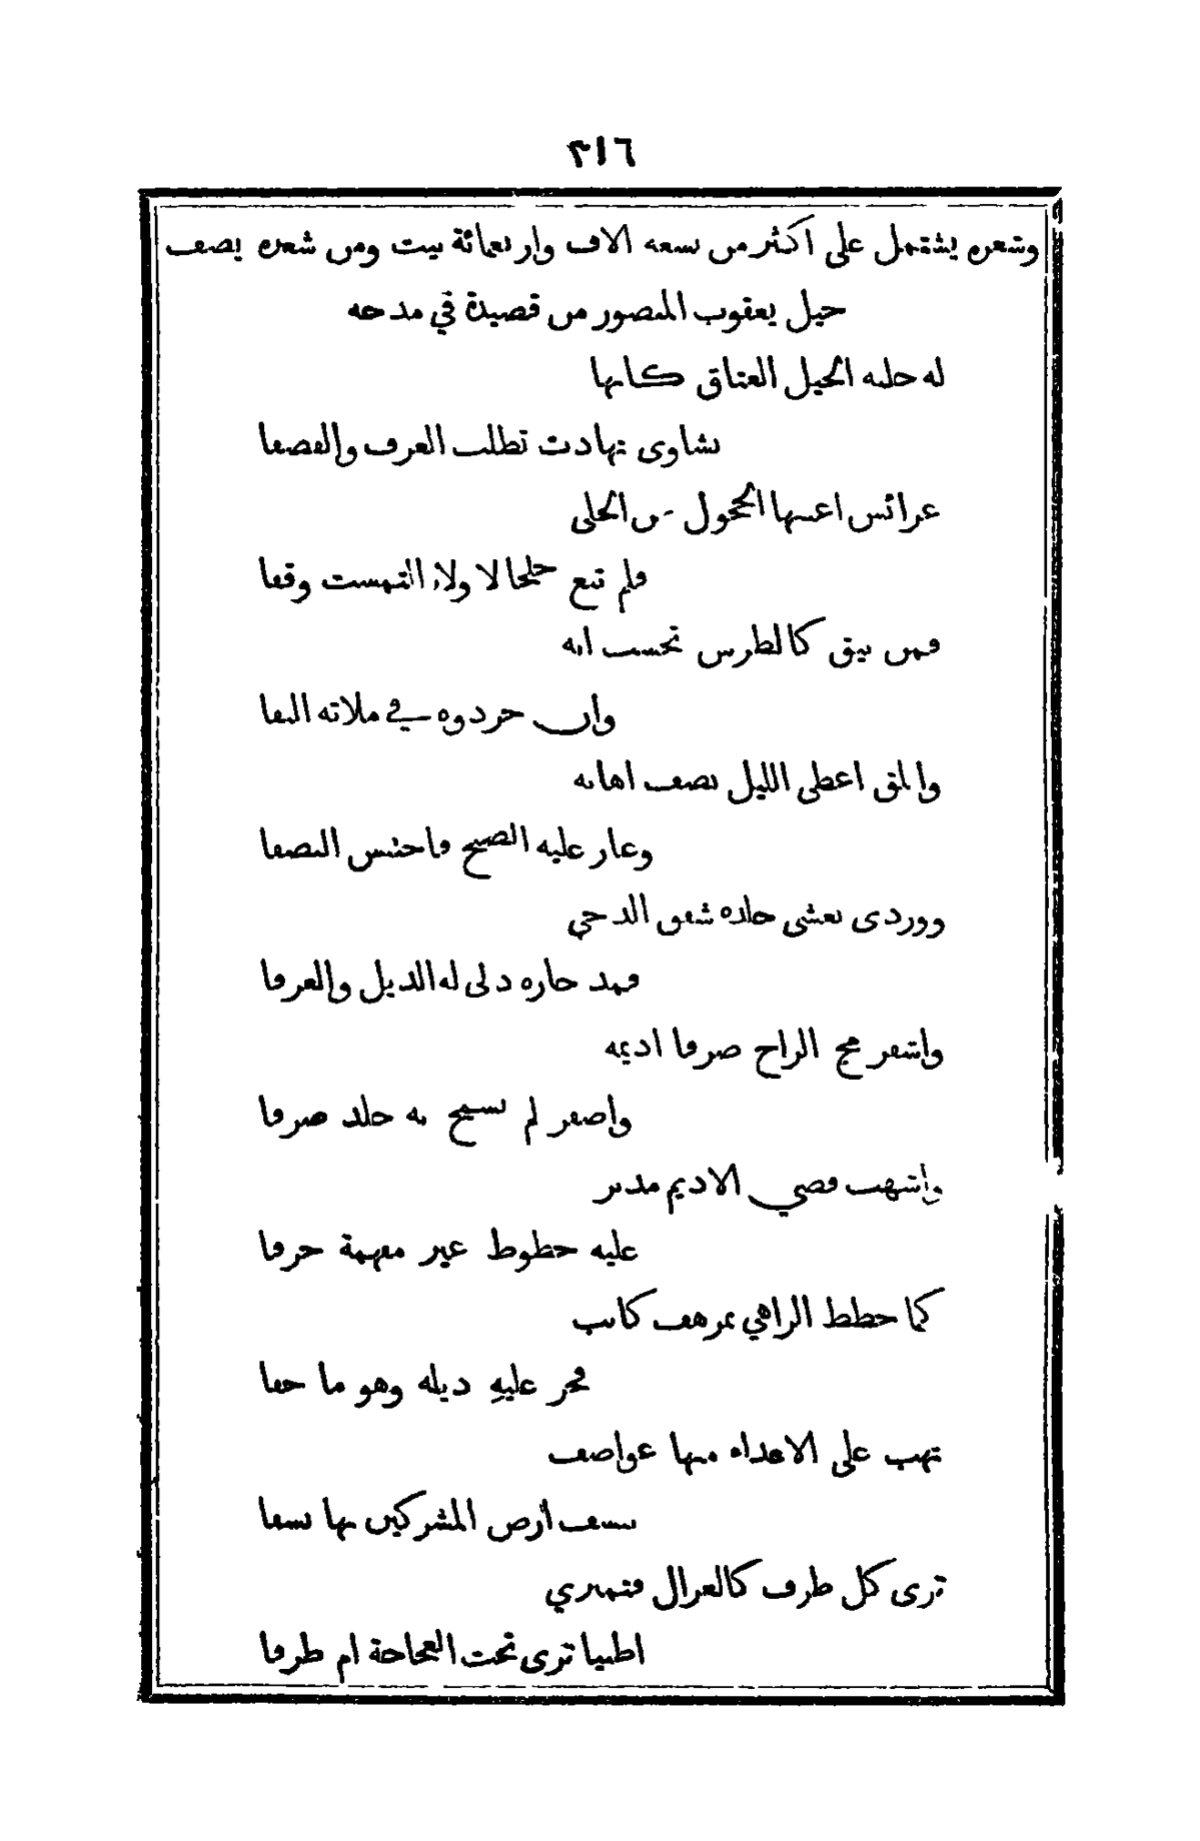 ٣١٦
وشعره يشتمل على اكثر من تسعة الاف واربعمائة بيت ومن شعره يصف
خيل يعقوب المنصور من قصيدة في مدحه
له حلبة الخيل العتاق كانها
نشاوى تهادت تطلب العزف والقصفا
عرائس اغنتها الحجول عن الحلى
فلم تبغ خلخالا ولا التمست وقفا
فمن يقق كالطرس تحسب انه
وان جردوه في ملاءته التفا
وابلق اعطى الليل نصف اهابه
وغار عليه الصبح فاحتبس النصفا
ووردى تغشى جلده شفق الدجى
فمذ حازه دلى له الذيل والعرفا
واشقر مج الراح صرفا اديمه
واصفر لم يسمح به جلده صرفا
واشهب فضي الاديم مدنر
عليه خطوط غير مفهمة حرفا
كما خطط الزاهي بمرهف كاتب
فجر عليه ذيله وهو ما جفا
تهب على الاعداء منها عواصف
ستنسف ارض المشركين بها نسفا
ترى كل طرف كالغزال فتمتري
اظبيا ترى تحت العجاجة ام طرفا